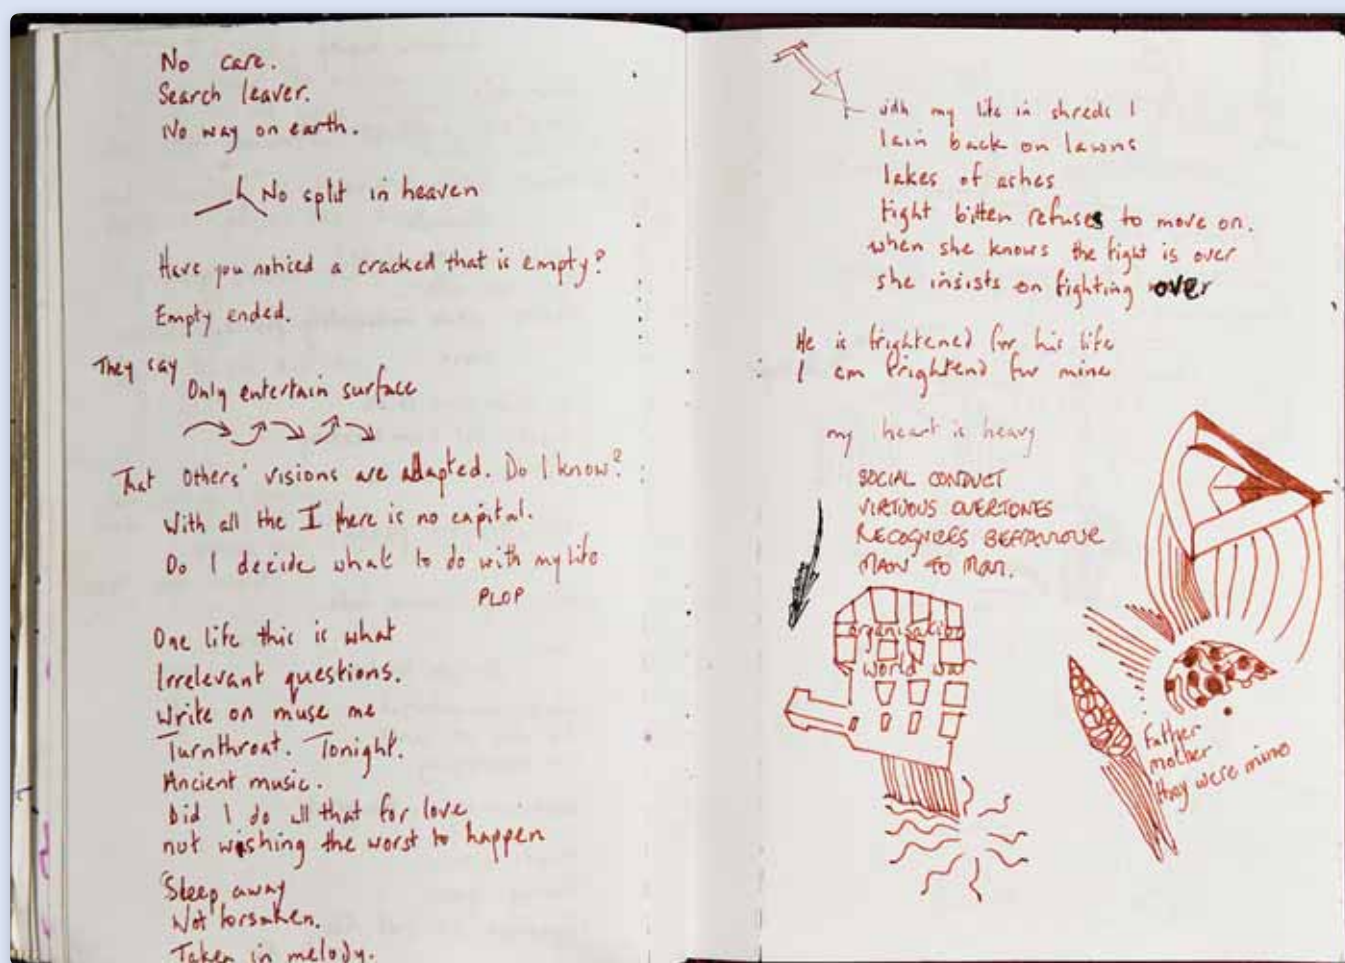 No care.
Search leaver.
No way on earth.
No split in heaven
Have you noticed a cracked that is empty?
Empty ended.
They say
Only entertain surface
That others' visions are adapted. Do I know?
With all the I there is no capital.
Do I decide what to do with my life
PLOP
One life this is what
Irrelevant questions.
Write on muse me
Turnthroat. Tonight.
Ancient music.
Did I do all that for love
not wishing the worst to happen
Sleep away
Not forsaken.
Taken in melody.
with my life in shreds I
lain back on lawns
lakes of ashes
fight bitten refuses to move on.
when she knows the fight is over
she insists on fighting over
He is frightened for his life
I am frightend for mine
my heart is heavy
SOCIAL CONDUCT
VIRTUOUS OVERTONES
RECOGNIZES BEHAVIOUR
MAN TO MAN.
organisation
world war
Father
mother
they were mine